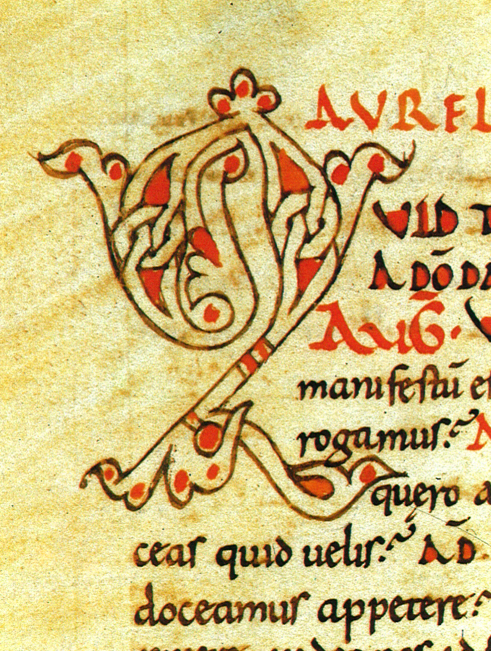 AVREL
Q VID T
ADŌDA
AUḠ·
manifestū es
rogamus:
quero a
ceas quid uelis: AD̄
doceamus appetere: